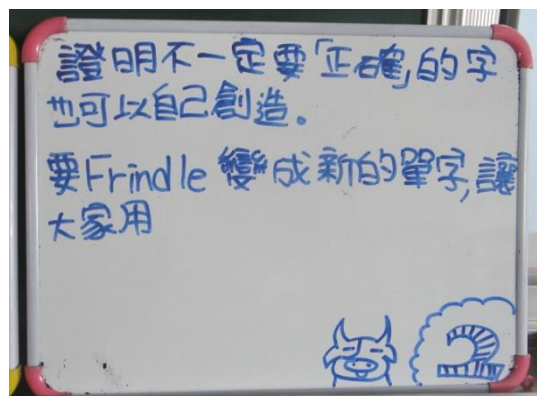 證明不一定要「正確」的字
也可以自己創造。
要Frindle 變成新的單字,讓
大家用
2